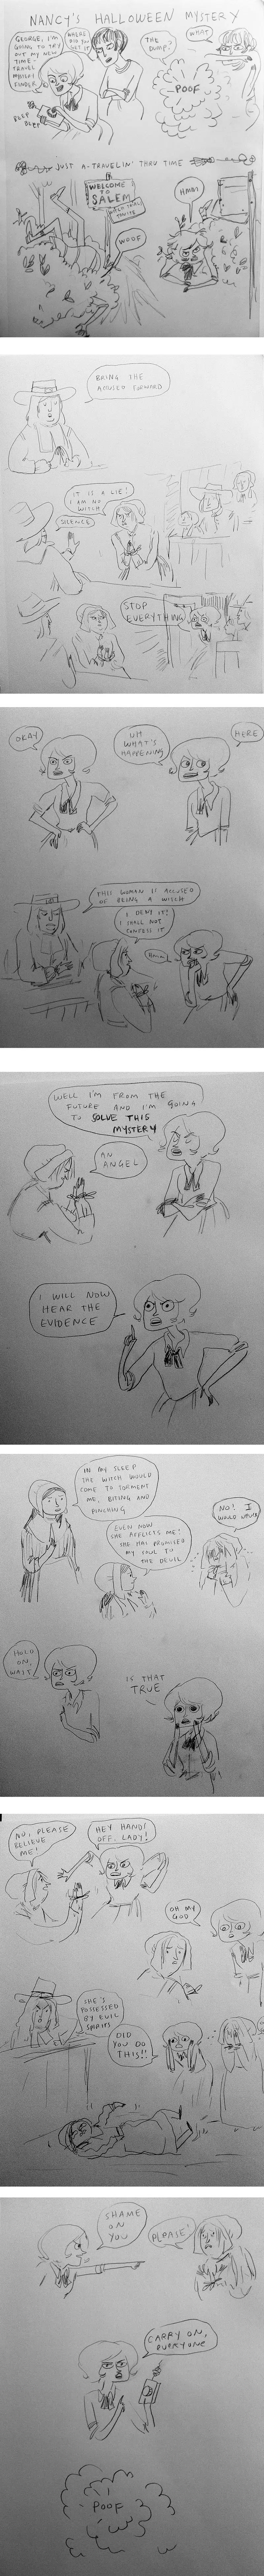 NANCY'S HALLOWEEN MYSTERY
GEORGE, I'M
GOING TO TRY
OUT MY NEW
TIME-
TRAVEL
MYSTERY
FINDER
WHERE
DID YOU
GET IT
BEEP
BEEP
THE
DUMP.
WHAT
POOF
JUST A-TRAVELIN' THRU TIME
WELCOME
TO
SALEM
WOOF
HMM?
BRING THE
ACCUSED FORWARD
IT IS A LIE!
I AM NO
WITCH
SILENCE
STOP
EVERYTHING
OKAY
UH
WHAT'S
HAPPENING
HERE
THIS WOMAN IS ACCUSED
OF BEING A WITCH
I DENY IT!
I SHALL NOT
CONFESS IT
HMMM
WELL I'M FROM THE
FUTURE AND I'M GOING
TO SOLVE THIS
MYSTERY
AN
ANGEL
I WILL NOW
HEAR THE
EVIDENCE
IN MY SLEEP
THE WITCH WOULD
COME TO TORMENT
ME, BITING AND
PINCHING
EVEN NOW
SHE AFFLICTS ME!
SHE HAS PROMISED
MY SOUL TO
THE DEVIL
NO! I
WOULD NEVER
HOLD
ON,
WAIT
IS THAT
TRUE
NO, PLEASE
BELIEVE
ME!
HEY HANDS
OFF, LADY!
OH MY
GOD
SHE'S
POSSESSED
BY EVIL
SPIRITS
DID
YOU DO
THIS!!
SHAME
ON
YOU
PLEASE!
CARRY ON,
EVERYONE
POOF